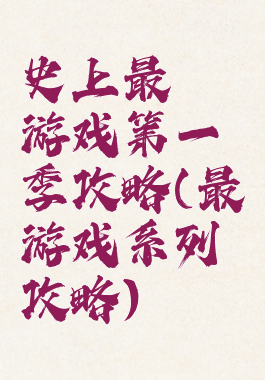 史上最
游戏第一
季攻略(最
游戏系列
攻略)